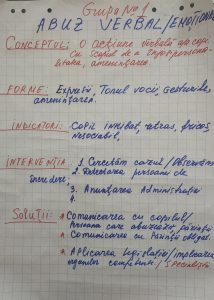 Grupa No 1
ABUZ VERBAL/EMOȚIONAL
CONCEPTUL: O acțiune verbală
cu scopul de a
amenințarea.
FORME: Expresii, Tonul vocii, Gesturile,
amenințarea.
INDICATORI: Copil inhibat, retras, fricos,
Nesociabil,
INTERVENȚIA: 1. Cercetăm cazul/Observăm
2. persoane de
încredere,
3. Anunțarea Administrației
4.
SOLUȚII: * Comunicarea cu copilul/
Persoana care abuzează, părinții
* Comunicarea cu Părinții
* Aplicarea Legislației/implicarea
organelor competente/Specialiști